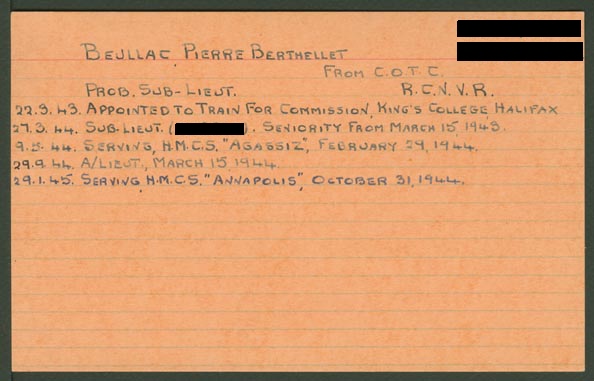 BEULLAC, PIERRE BERTHELLET
FROM C.O.T.C.
PROB. SUB-LIEUT. R.C.N.V.R.
22.9.43. APPOINTED TO TRAIN FOR COMMISSION, KING'S COLLEGE HALIFAX
27.3.44. SUB-LIEUT. ( ). SENIORITY FROM MARCH 15, 1943.
9.5.44. SERVING, H.M.C.S. "AGASSIZ", FEBRUARY 29, 1944.
29.9.44. A/LIEUT., MARCH 15, 1944.
29.1.45. SERVING, H.M.C.S. "ANNAPOLIS", OCTOBER 31, 1944.